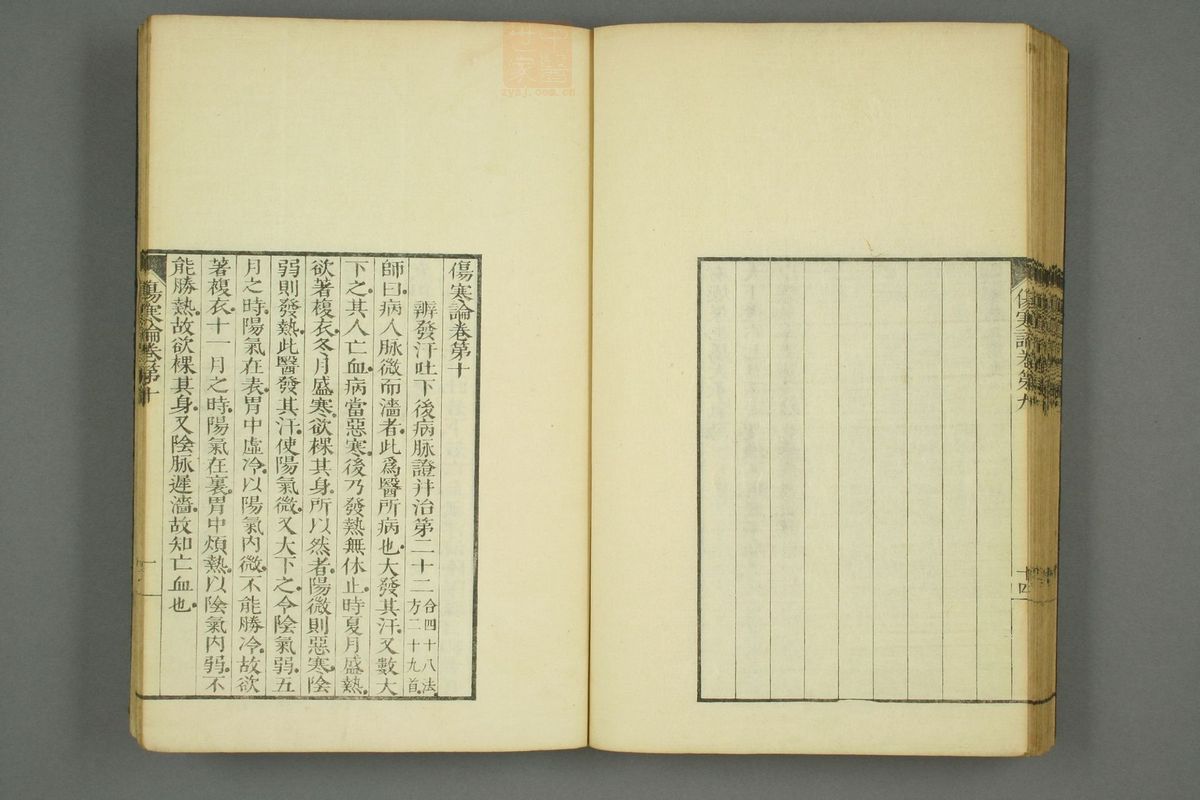 中醫世家
zysj.com.cn
傷寒論卷第九
十四
傷寒論卷第十
辨發汗吐下後病脉證幷治第二十二 合四十八法方二十九首
師曰病人脉微而濇者此爲醫所病也大發其汗又數大
下之其人亡血病當惡寒後乃發熱無休止時夏月盛熱
欲著複衣冬月盛寒欲棵其身所以然者陽微則惡寒陰
弱則發熱此醫發其汗使陽氣微又大下之令陰氣弱五
月之時陽氣在表胃中虛冷以陽氣內微不能勝冷故欲
著複衣十一月之時陽氣在裏胃中煩熱以陰氣內弱不
能勝熱故欲棵其身又陰脉遲濇故知亡血也
傷寒論卷第十
一